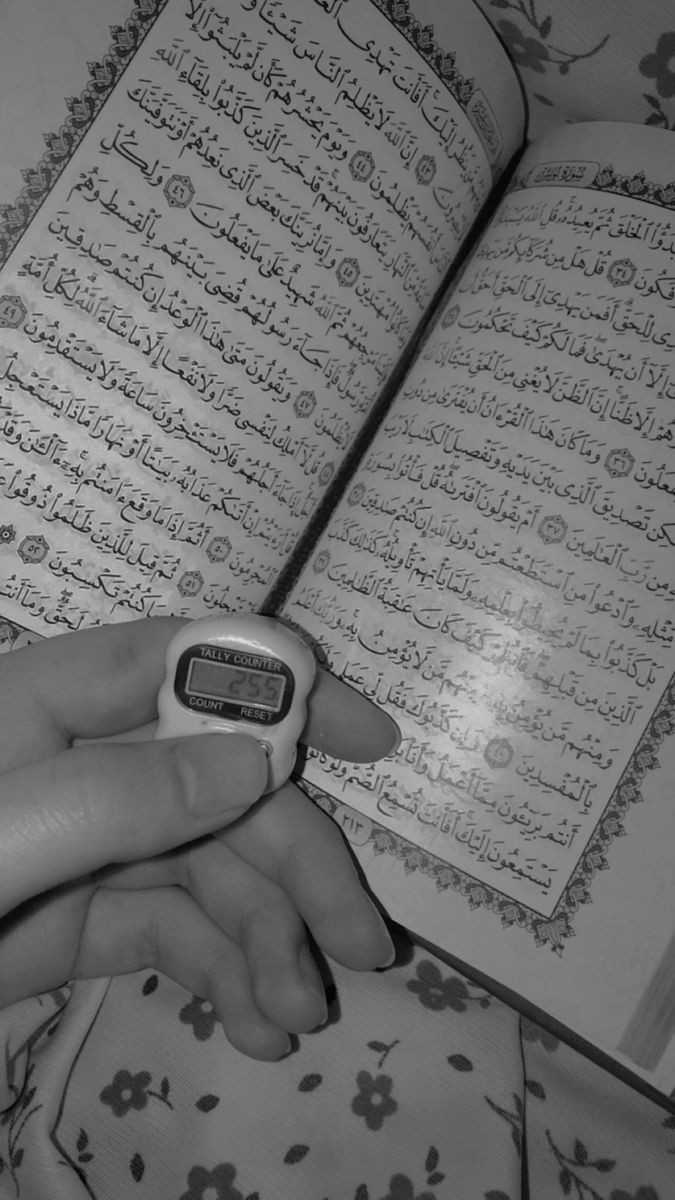 سُورَةُ يُونُسَ
ٱلْخَلْقَ ثُمَّ يُعِيدُهُۥ قُلِ ٱللَّهُ
٣٤ قُلْ هَلْ مِن شُرَكَآئِكُم مَّن
لِلْحَقِّ أَفَمَن يَهْدِىٓ إِلَى ٱلْحَقِّ أَحَقُّ أَن
إِلَّآ أَن يُهْدَىٰ فَمَا لَكُمْ كَيْفَ تَحْكُمُونَ ٣٥
إِلَّا ظَنًّا إِنَّ ٱلظَّنَّ لَا يُغْنِى مِنَ ٱلْحَقِّ شَيْـًٔا إِنَّ ٱللَّهَ
٣٦ وَمَا كَانَ هَٰذَا ٱلْقُرْءَانُ أَن يُفْتَرَىٰ مِن دُونِ
تَصْدِيقَ ٱلَّذِى بَيْنَ يَدَيْهِ وَتَفْصِيلَ ٱلْكِتَٰبِ لَا رَيْبَ
مِن رَّبِّ ٱلْعَٰلَمِينَ ٣٧ أَمْ يَقُولُونَ ٱفْتَرَىٰهُ قُلْ فَأْتُوا۟ بِسُورَةٍ
مِّثْلِهِۦ وَٱدْعُوا۟ مَنِ ٱسْتَطَعْتُم مِّن دُونِ ٱللَّهِ إِن كُنتُمْ صَٰدِقِينَ ٣٨
بَلْ كَذَّبُوا۟ بِمَا لَمْ يُحِيطُوا۟ بِعِلْمِهِۦ وَلَمَّا يَأْتِهِمْ تَأْوِيلُهُۥ كَذَٰلِكَ كَذَّبَ
ٱلَّذِينَ مِن قَبْلِهِمْ فَٱنظُرْ كَيْفَ كَانَ عَٰقِبَةُ ٱلظَّٰلِمِينَ ٣٩
وَمِنْهُم مَّن يُؤْمِنُ بِهِۦ وَمِنْهُم مَّن لَّا يُؤْمِنُ بِهِۦ وَرَبُّكَ أَعْلَمُ
بِٱلْمُفْسِدِينَ ٤٠ وَإِن كَذَّبُوكَ فَقُل لِّى عَمَلِى
أَنتُم بَرِيٓـُٔونَ مِمَّآ أَعْمَلُ وَأَنَا۠
يَسْتَمِعُونَ إِلَيْكَ أَفَأَنتَ تُسْمِعُ ٱلصُّمَّ وَلَوْ كَانُوا۟
٢١٣
يَنظُرُ إِلَيْكَ أَفَأَنتَ تَهْدِى
٤٣ إِنَّ ٱللَّهَ لَا يَظْلِمُ ٱلنَّاسَ شَيْـًٔا
أَنفُسَهُمْ يَظْلِمُونَ ٤٤ وَيَوْمَ يَحْشُرُهُمْ كَأَن لَّمْ يَلْبَثُوٓا۟ إِلَّا
مِّنَ ٱلنَّهَارِ يَتَعَارَفُونَ بَيْنَهُمْ قَدْ خَسِرَ ٱلَّذِينَ كَذَّبُوا۟ بِلِقَآءِ ٱللَّهِ
مُهْتَدِينَ ٤٥ وَإِمَّا نُرِيَنَّكَ بَعْضَ ٱلَّذِى نَعِدُهُمْ أَوْ نَتَوَفَّيَنَّكَ
مَرْجِعُهُمْ ثُمَّ ٱللَّهُ شَهِيدٌ عَلَىٰ مَا يَفْعَلُونَ ٤٦ وَلِكُلِّ
رَّسُولٌ فَإِذَا جَآءَ رَسُولُهُمْ قُضِىَ بَيْنَهُم بِٱلْقِسْطِ وَهُمْ
لَا يُظْلَمُونَ ٤٧ وَيَقُولُونَ مَتَىٰ هَٰذَا ٱلْوَعْدُ إِن كُنتُمْ صَٰدِقِينَ
٤٨ قُل لَّآ أَمْلِكُ لِنَفْسِى ضَرًّا وَلَا نَفْعًا إِلَّا مَا شَآءَ ٱللَّهُ لِكُلِّ أُمَّةٍ
أَجَلٌ إِذَا جَآءَ أَجَلُهُمْ فَلَا يَسْتَـْٔخِرُونَ سَاعَةً وَلَا يَسْتَقْدِمُونَ ٤٩
قُلْ أَرَءَيْتُمْ إِنْ أَتَىٰكُمْ عَذَابُهُۥ بَيَٰتًا أَوْ نَهَارًا مَّاذَا يَسْتَعْجِلُ
ٱلْمُجْرِمُونَ ٥٠ أَثُمَّ إِذَا مَا وَقَعَ ءَامَنتُم بِهِۦٓ ءَآلْـَٰٔنَ وَقَدْ
٥١ ثُمَّ قِيلَ لِلَّذِينَ ظَلَمُوا۟ ذُوقُوا۟
كُنتُمْ تَكْسِبُونَ ٥٢
لَحَقٌّ وَمَآ أَنتُم
TALLY COUNTER
255
COUNT RESET